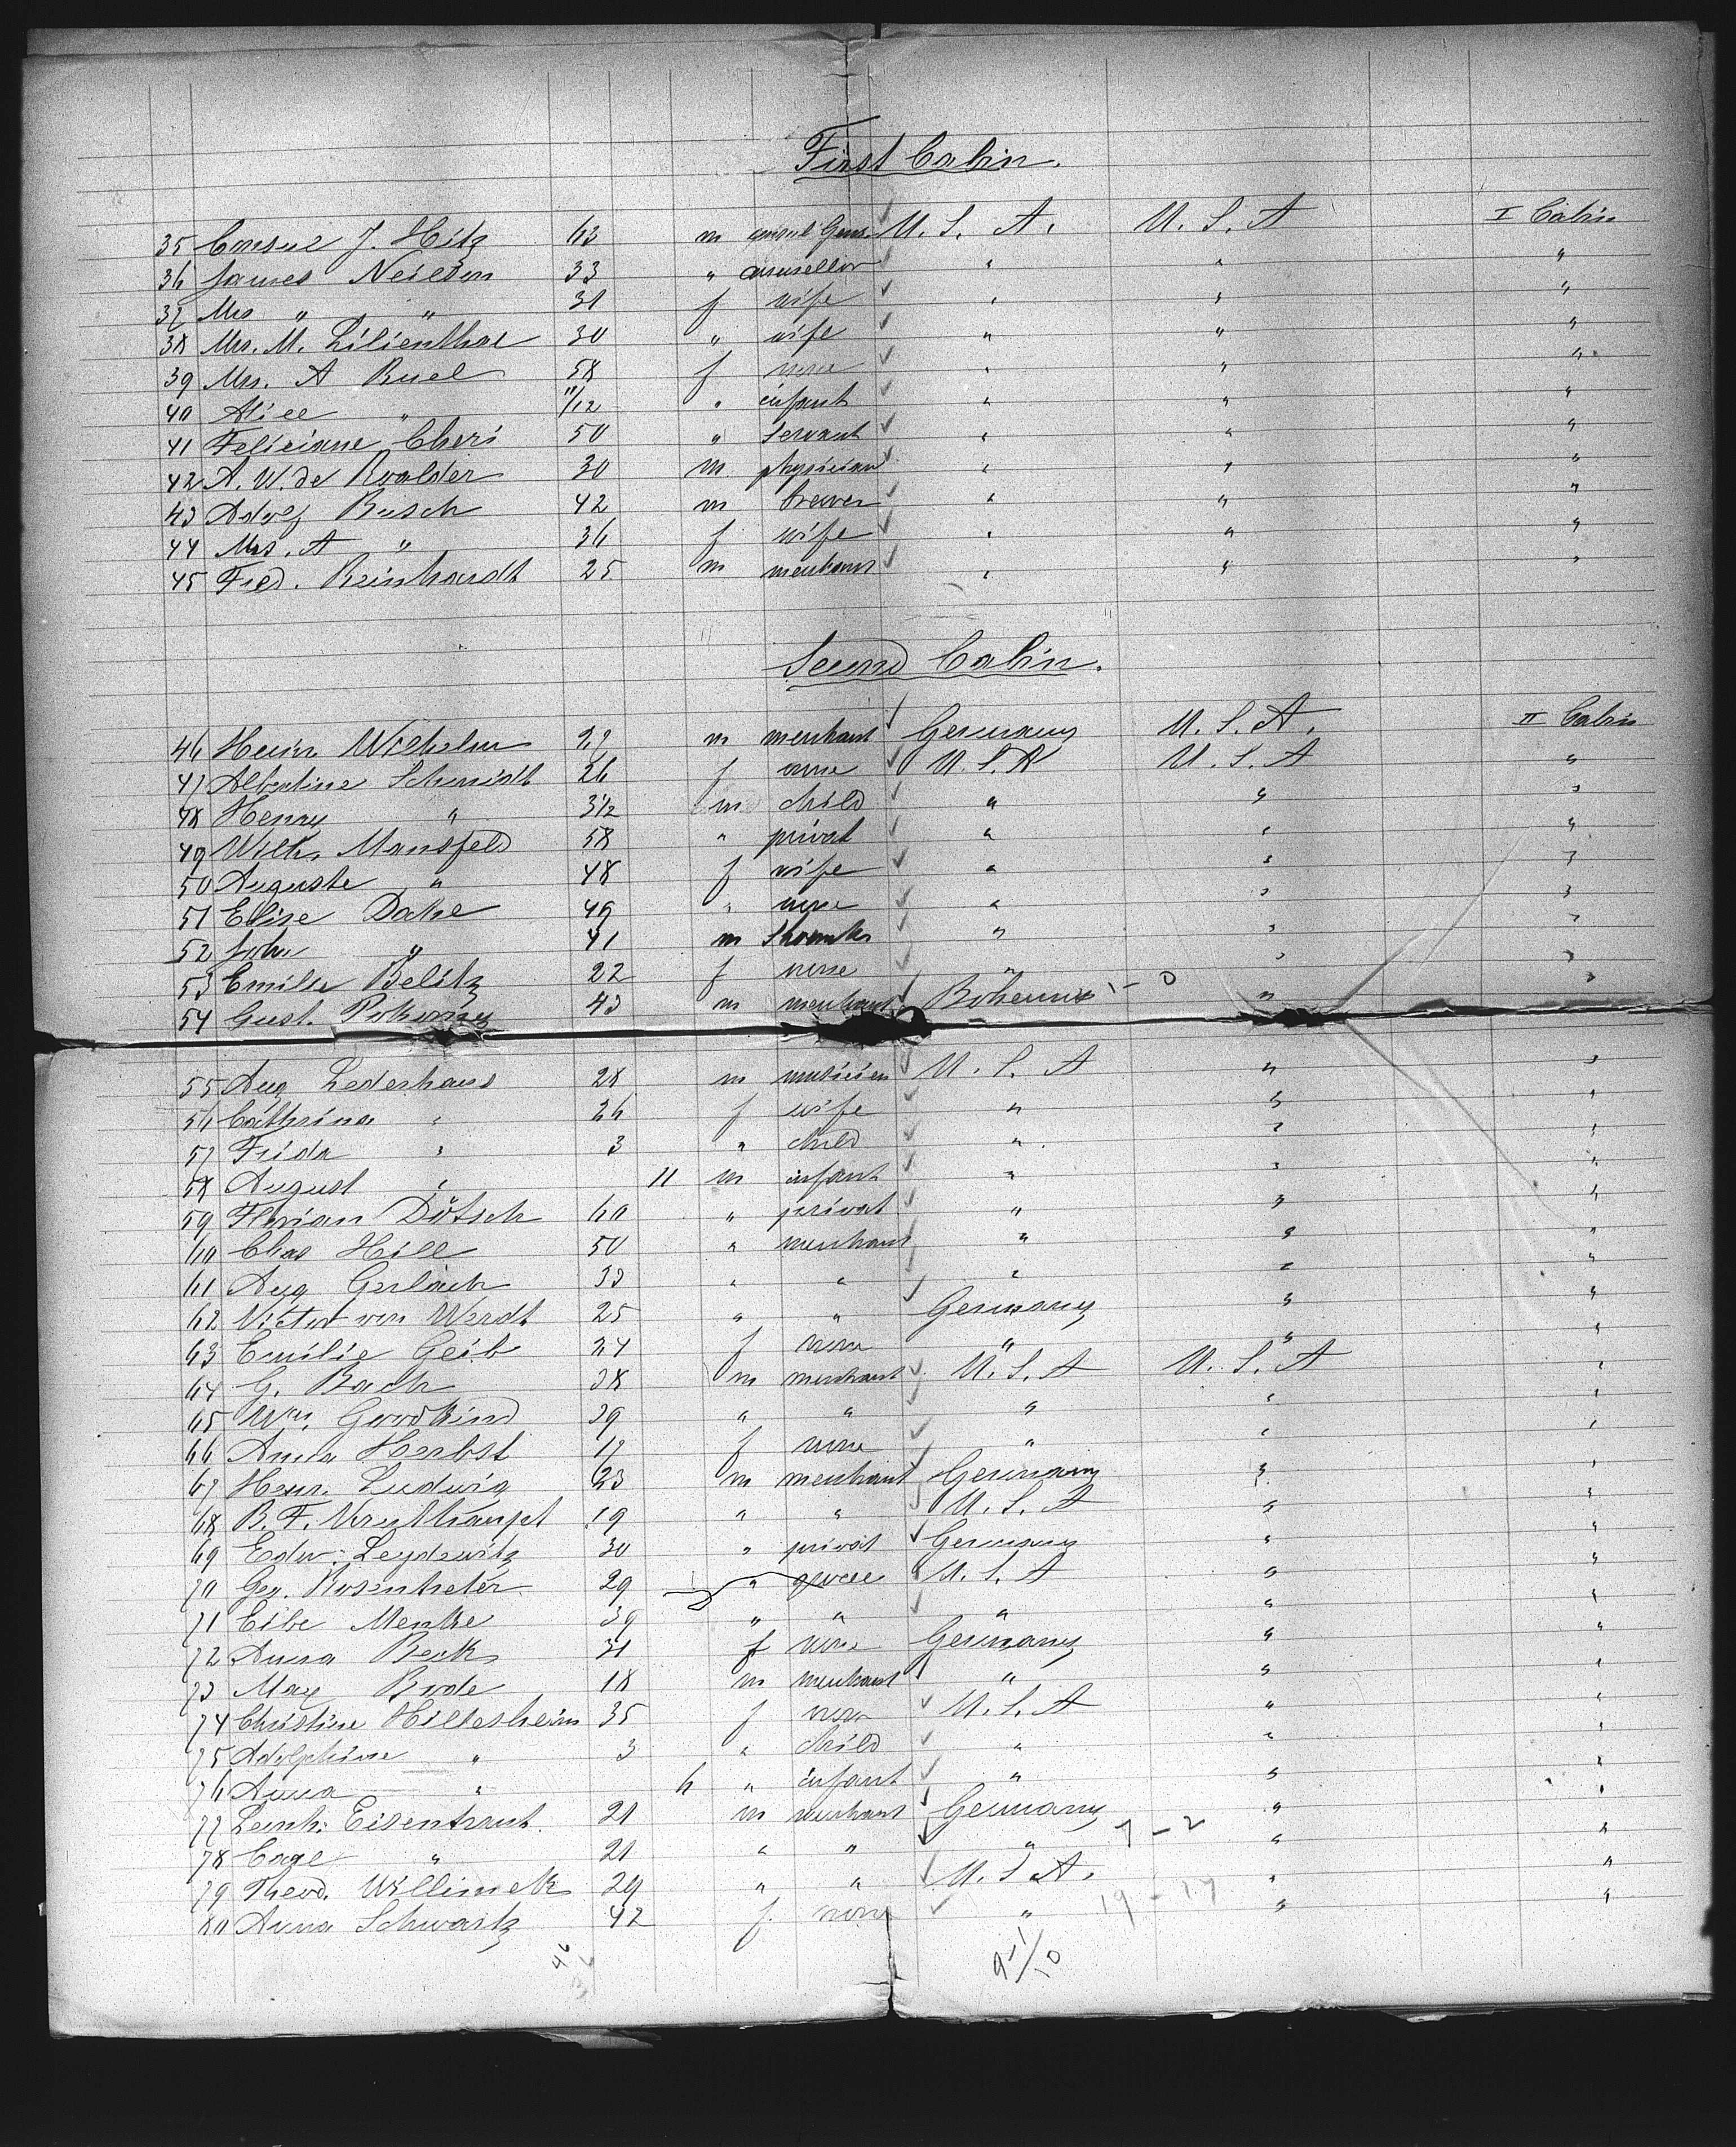 First Cabin.
35 Consul J. Hitz 63 m consul Gen. U. S. A. U. S. A I Cabin
36 James Neilson 33 " counsellor " " "
37 Mrs " " 31 f wife " " "
38 Mrs. M. Lilienthal 30 " wife " " "
39 Mrs. A Ruel 58 f none " " "
40 Alice " 11/12 " infant " " "
41 Feliciane Cheri 50 " Servant " " "
42 A. W. de Roalder 30 m physician " " "
43 Adolf Busch 42 m brewer " " "
44 Mrs. A " 36 f wife " " "
45 Fred. Reinhardt 25 m merchant " " "
Second Cabin.
46 Heinr Wilhelm 27 m merchant Germany U. S. A. II Cabin
47 Albertine Schmidt 26 f none U. S. A U. S. A "
48 Henry " 3 1/2 m child " " "
49 Wilh. Mansfeld 58 " privat " " "
50 Auguste " 48 f wife " " "
51 Elise Dahl 49 " none " " "
52 John " 41 m Shoemk " " "
53 Emilie Belitz 22 f none " " "
54 Gust. Pokorny 43 m merchant Bohemia 1 - 0 " "
55 Aug Lederhaus 28 m musician U. S. A " "
56 Cathrina " 26 f wife " " "
57 Frida " 3 " child " " "
58 August " 11 m infant " " "
59 Florian Dötsch 60 " privat " " "
60 Chas Hill 50 " merchant " " "
61 Aug Gerlach 33 " " " " "
62 Victor von Werdt 25 " " Germany " "
63 Emilie Geib 24 f none " " "
64 G. Bach 38 m merchant U. S. A U. S. A "
65 Wm. Goodkind 39 " " " " "
66 Anna Herbst 17 f none " " "
67 Henr. Ludwig 23 m merchant Germany " "
68 B. F. 19 " " U. S. A " "
69 Edw: Leydewitz 30 " privat Germany " "
70 Geo. Rosentreter 29 " U. S. A " "
71 Eibe Menke 39 " " " " "
72 Anna Beck 31 f none Germany " "
73 Max Bode 18 m merchant " " "
74 Christine Hillesheim 35 f none U. S. A " "
75 Adolphine " 3 " child " " "
76 Anna " 6 " infant " " "
77 Leonh: Eisentraut. 21 m merchant Germany " "
78 Carl " 21 " " " 7 - 2 " "
79 Theod. Willimek 29 " " U. S A. " "
80 Anna Schwartz 42 f. none " 19 - 17 " "